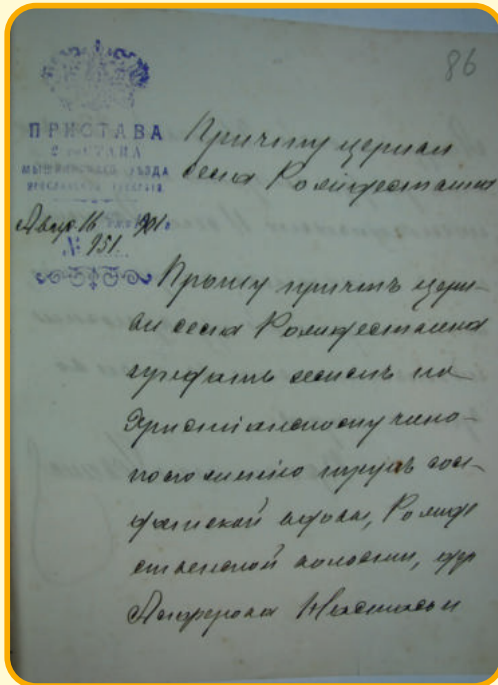 86
ПРИСТАВА
СТАНА
МЫШКИНСКАГО УѢЗДА
ЯРОСЛАВСКОЙ ГУБЕРНІИ
Авг. 16 1901 г.
№ 951.
Причту церкви
села Рождествено
Прошу причтъ церк-
ви села Рождествена
предать землѣ по
Христіанскому чино-
положенію трупъ сол-
датской вдовы, Рожде
ственской волости, дер
Анферова Настасьи